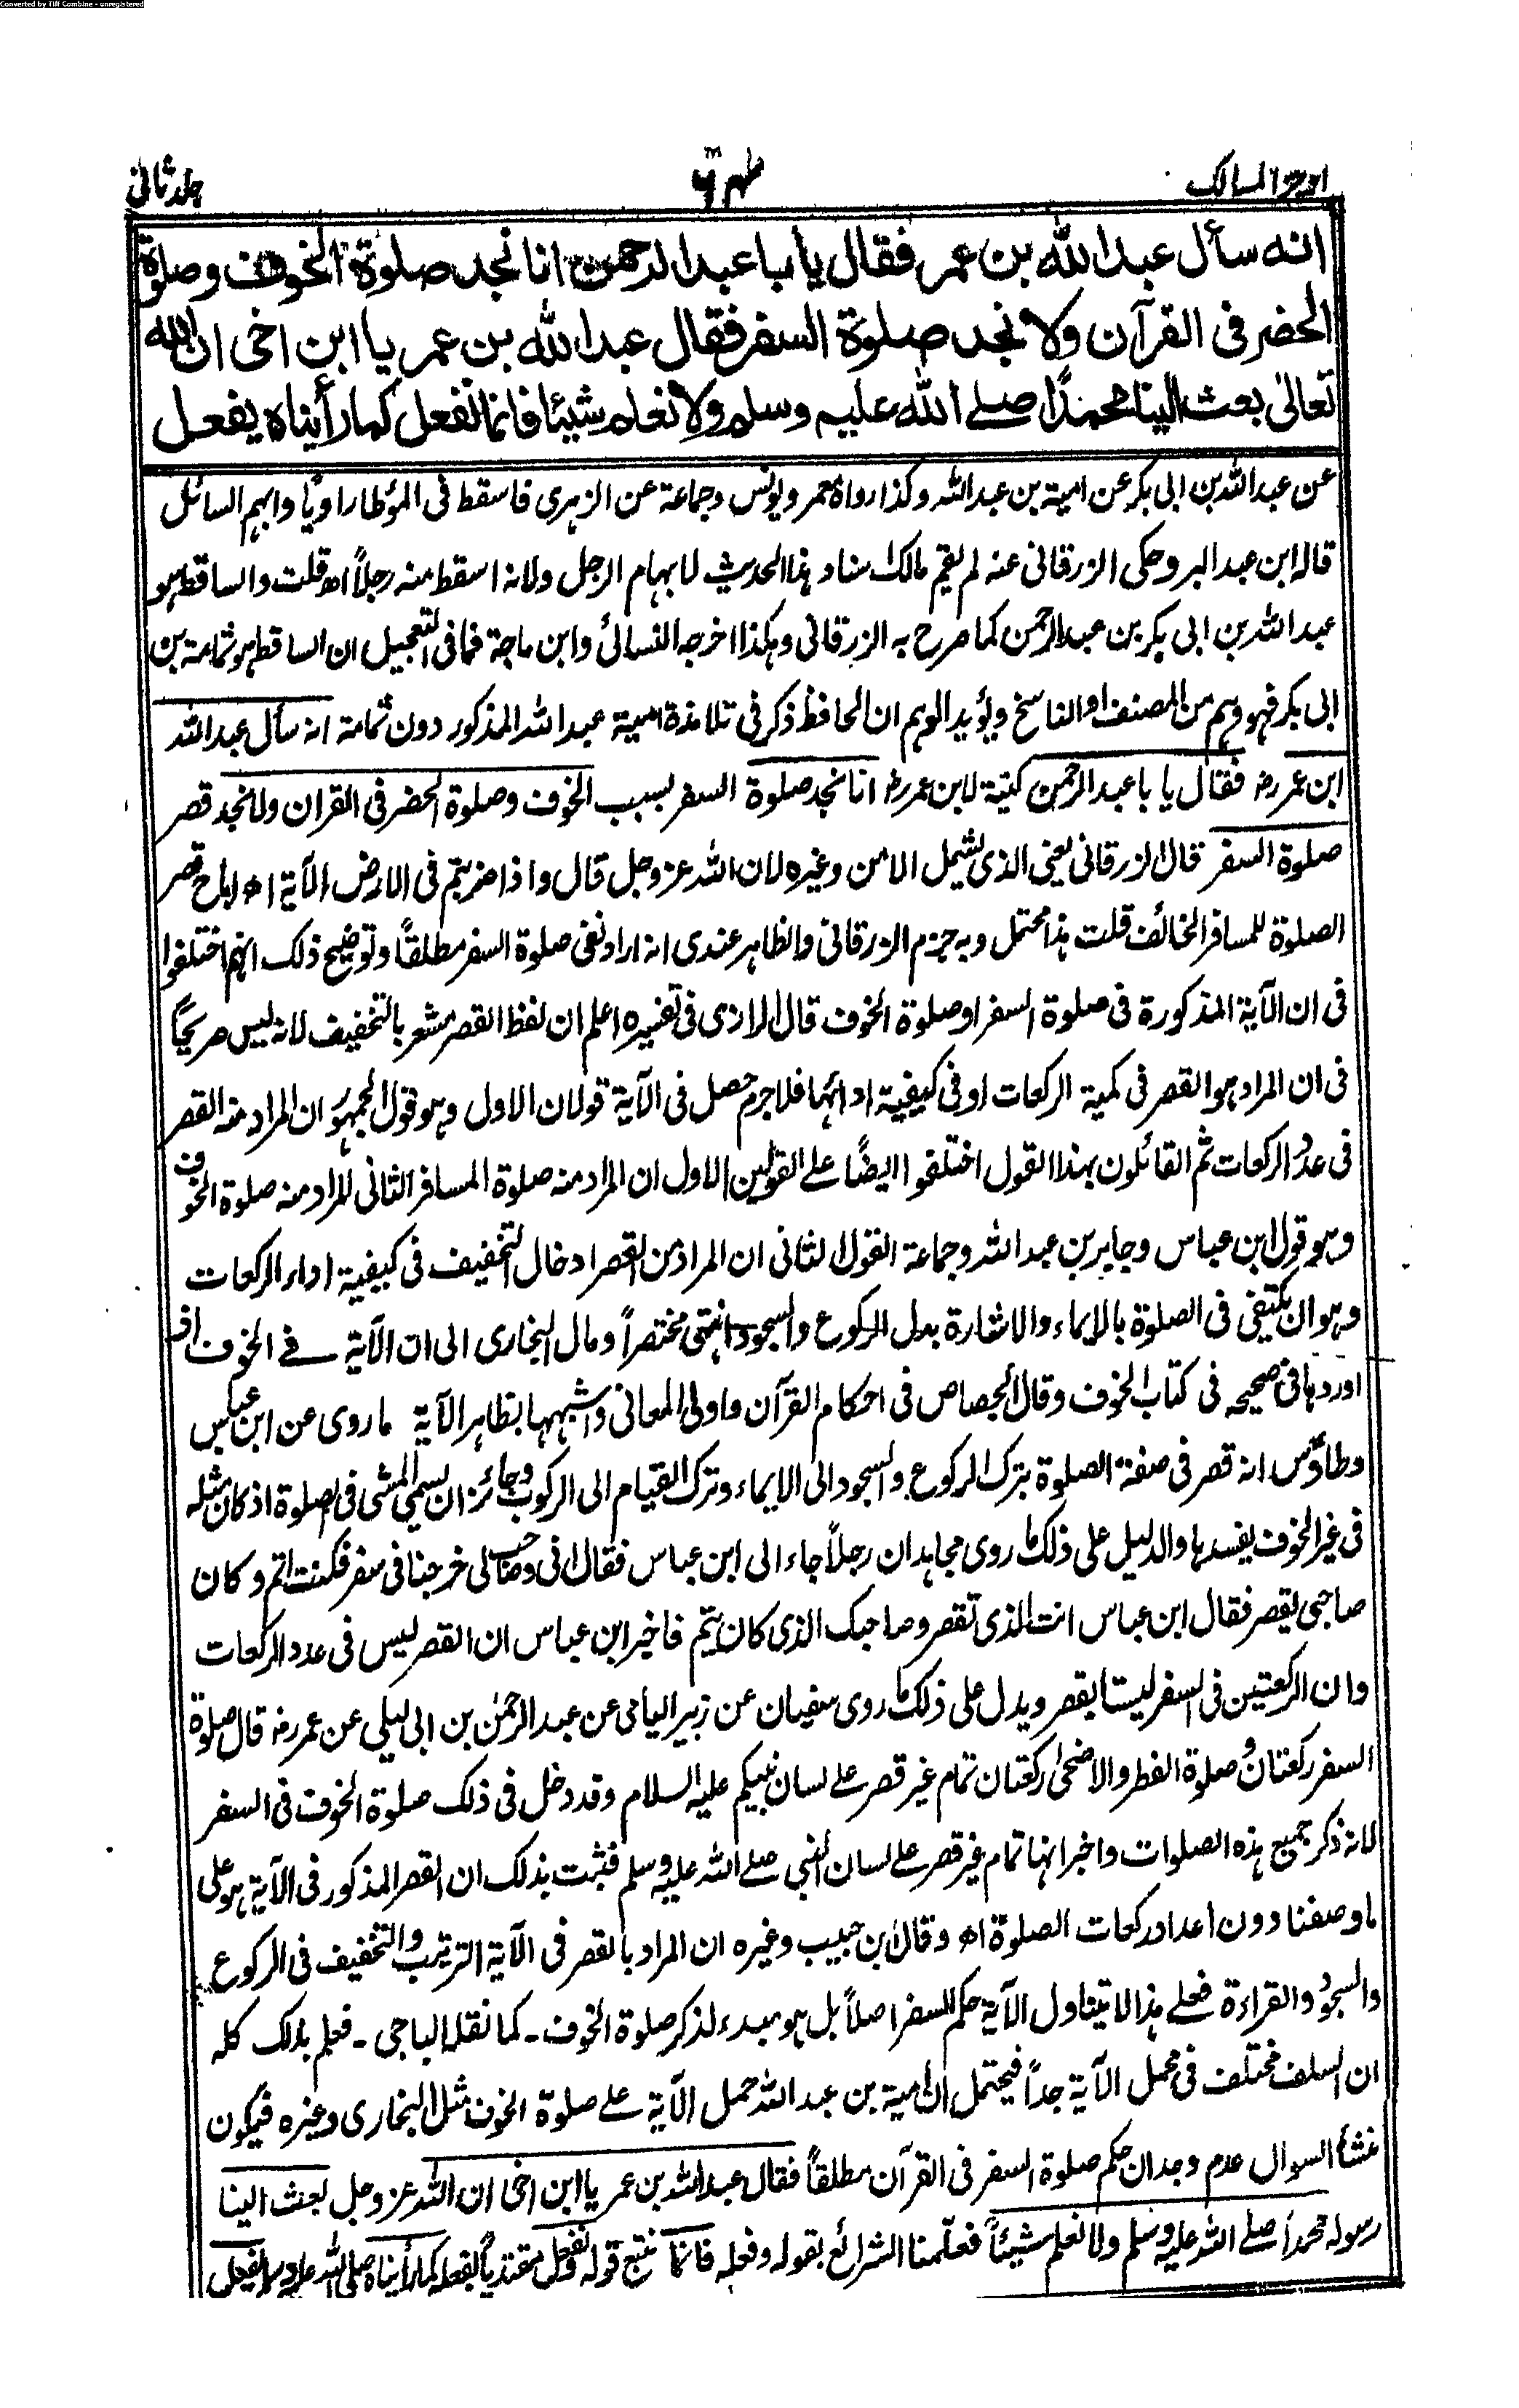 Converted by Tiff Combine - unregistered
اوجز المسالك
جلد ثانى
انه سأل عبد الله بن عمر فقال يا أبا عبد الرحمن انا نجد صلوة الخوف وصلوة
الحضر فى القرآن ولا نجد صلوة السفر فقال عبد الله بن عمر يا ابن اخى ان الله
تعالى بعث الينا محمدًا صلے الله عليه وسلم ولا نعلم شيئا فانما نفعل كما رأيناه يفعل
عن عبد الله بن ابى بكر عن امية بن عبد الله وكذا رواه معمر ويونس وجماعة عن الزهرى فاسقط فى المؤطا راويًا وابهم السائل
قاله ابن عبد البر وحكى الزرقانى عنه لم يقم مالك اسناد هذا الحديث لابهام الرجل ولانه اسقط منه رجلاً اھ قلت والساقط هو
عبد الله بن ابى بكر بن عبد الرحمن كما صرح به الزرقانى وهكذا اخرجه النسائى وابن ماجة فما فى التعجيل ان الساقط هو ثمامة بن
ابى بكر فهو وهم من المصنف او الناسخ ويؤيد الوهم ان الحافظ ذكر فى تلامذة امية عبد الله المذكور دون ثمامة انه سأل عبد الله
ابن عمر رضـ فقال يا با عبد الرحمن كنية لابن عمر رضـ انا نجد صلوة السفر بسبب الخوف وصلوة الحضر فى القران ولا نجد قصر
صلوة السفر قال الزرقانى يعنى الذى يشمل الامن وغيره لان الله عز وجل قال واذا ضربتم فى الارض الآية اھ اباح قصر
الصلوة للمسافر الخائف قلت هذا محتمل وبه جزم الزرقانى والظاهر عندى انه اراد نفى صلوة السفر مطلقاً وتوضيح ذلك انهم اختلفوا
فى ان الآية المذكورة فى صلوة السفر او صلوة الخوف قال الرازى فى تفسيره اعلم ان لفظ القصر مشعر بالتخفيف لانه ليس صريحًا
فى ان المراد هو القصر فى كمية الركعات او فى كيفية ادائها فلا جرم حصل فى الآية قولان الاول وهو قول الجمهور ان المراد منه القصر
فى عدد الركعات ثم القائلون بهذا القول اختلفوا ايضًا على القولين الاول ان المراد منه صلوة المسافر الثانى المراد منه صلوة الخوف
وهو قول ابن عباس وجابر بن عبد الله وجماعة القول الثانى ان المراد من القصر ادخال التخفيف فى كيفية اداء الركعات
وهو ان يكتفى فى الصلوة بالايماء والاشارة بدل الركوع والسجود انتهى مختصراً ومال البخارى الى ان الآية فے الخوف اذ
اوردها فى صحيحه فى كتاب الخوف وقال الجصاص فى احكام القرآن واولى المعانى واشبهها بظاهر الآية ما روى عن ابن عباس
وطاؤس انه قصر فى صفة الصلوة بترك الركوع والسجود الى الايماء وترك القيام الى الركوب وجائز ان يسمى المشى فى الصلوة اذ كان مثله
فى غير الخوف يفسدها والدليل على ذلك ما روى مجاهد ان رجلاً جاء الى ابن عباس فقال انى وصاحب لى خرجنا فى سفر فكنت اتم وكان
صاحبى يقصر فقال ابن عباس انت الذى تقصر وصاحبك الذى كان يتم فاخبر ابن عباس ان القصر ليس فى عدد الركعات
وان الركعتين فى السفر ليستا بقصر ويدل على ذلك ما روى سفيان عن زبير اليامى عن عبد الرحمٰن بن ابى ليلى عن عمر رضـ قال صلوة
السفر ركعتان وصلوة الفطر والاضحٰى ركعتان تمام غير قصر علے لسان نبيكم عليه السلام وقد دخل فى ذلك صلوة الخوف فى السفر
لانه ذكر جميع هذه الصلوات واخبر انها تمام غير قصر علے لسان النبى صلے الله عليه وسلم فثبت بذلك ان القصر المذكور فى الآية هو على
ما وصفنا دون اعداد ركعات الصلوة اھ وقال ابن حبيب وغيره ان المراد بالقصر فى الآية الترتيب والتخفيف فى الركوع
والسجود والقراءة فعلے هذا لا يتناول الآية حكم السفر اصلاً بل هو مبدء لذكر صلوة الخوف - كما نقله الباجى - فعلم بذلك كله
ان السلف مختلف فى محمل الآية جداً فيحتمل ان امية بن عبد الله حمل الآية علے صلوة الخوف مثل البخارى وغيره فيكون
منشأ السوال عدم وجدان حكم صلوة السفر فى القرآن مطلقاً فقال عبد الله بن عمر يا ابن اخى ان الله عز وجل بعث الينا
رسوله محمداً صلے الله عليه وسلم ولا نعلم شيئاً فعلّمنا الشرائع بقوله وفعله فانما نتبع قوله ونفعل مقتدياً بفعله كما رأيناه صلى الله عليه وسلم يفعل